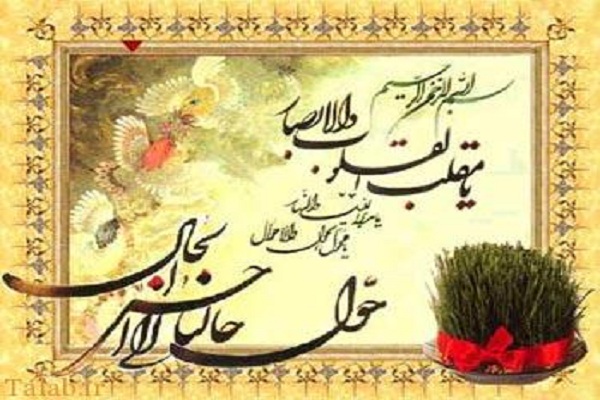 بسم الله الرحمن الرحیم
یا مقلب القلوب والابصار
یا مدبر اللیل والنهار
یا محول الحول والاحوال
حول حالنا الی احسن الحال
Tafab.ir